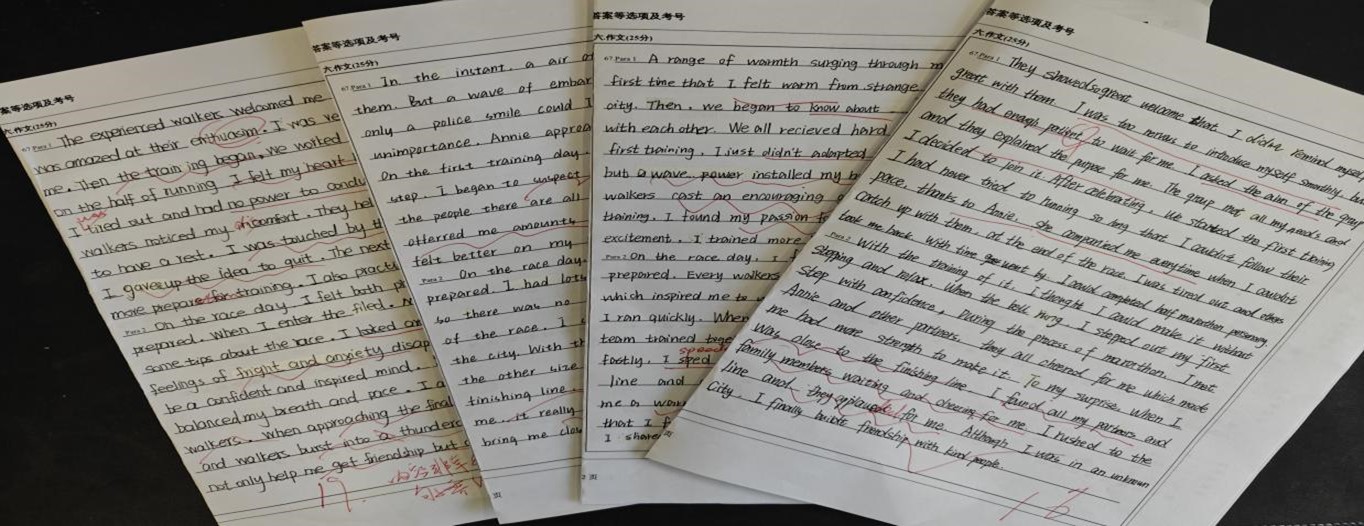 答案等选项及考号
六.作文(25分)
67 Para 1 The experienced walkers welcomed me
was amazed at their enthuasim. I was ve
me. Then the training began, We worked
on the half of running. I felt my heart
I tired out and had no power to condu
walkers noticed my discomfort. They hel
to have a rest. I was touched by t
I gave up the idea to quit. The next
more prepare for training. I also practi
Para 2 On the race day. I felt both
prepared. When I enter the filed.
some tips about the race. I
feelings of fright and anxiety disap
be a confident and inspired mind.
balanced my breath and pace. I a
walkers. When approaching the final
and walkers burst into a thunder
not only help me get friendship but
19.
答案等选项及考号
六.作文(25分)
67 Para 1 In the instant. a air of
them. But a wave of embar
only a police smile could I
unimportance. Annie approa
On the first training day.
step. I began to suspect
the people there are all
offerred me amounts
felt better on my
Para 2 On the race day.
prepared I had lots
so there was no
of the race. I
the city. With th
the other
finishing line.
me.. it really
bring me clos
答案等选项及考号
六.作文(25分)
67 Para 1 A range of warmth surging through m
first time that I felt warm from strange
city. Then, we began to know about
with each other. We all recieved hard
first training, I just didn't adapted
but a wave power installed my h
walkers cast an encouraging
training. I found my passion fo
excitement. I trained more
Para 2 On the race day. I f
prepared. Every walkers
which inspired me to
I ran quickly. When
team trained toge
fastly. I sped
line and
me a warm
that I f
I share
答案等选项及考号
六.作文(25分)
67 Para 1 They showed so great welcome that I didn't remind myself
greet with them. I was too nervous to introduce myself smoothly but
they had enough patient to wait for me. I asked the aim of the group
and they explained the purpose for me. The group met all my needs and
I decided to join it. After celebrating, We started the first training
I had never tried to running so long that I couldn't follow their
pace, thanks to Annie, she companied me everytime when I couldn't
catch up with them. at the end of the race. I was tired out and others
took me back. With time went by. I could completed half marathon
Para 2 With the training of it. I thought I could make it without
stopping and relax. When the bell hung. I stepped out my first
step with confidence, During the process of marathon. I met
Annie and other partners. they all cheered for me which made
me had more strength to make it. To my surprise, When I
was close to the finishing line I found all my partners and
family members waiting and cheering for me. I rushed to the
line and they applauded for me. Although I was in an unknown
City. I finally builte friendship with kind people.